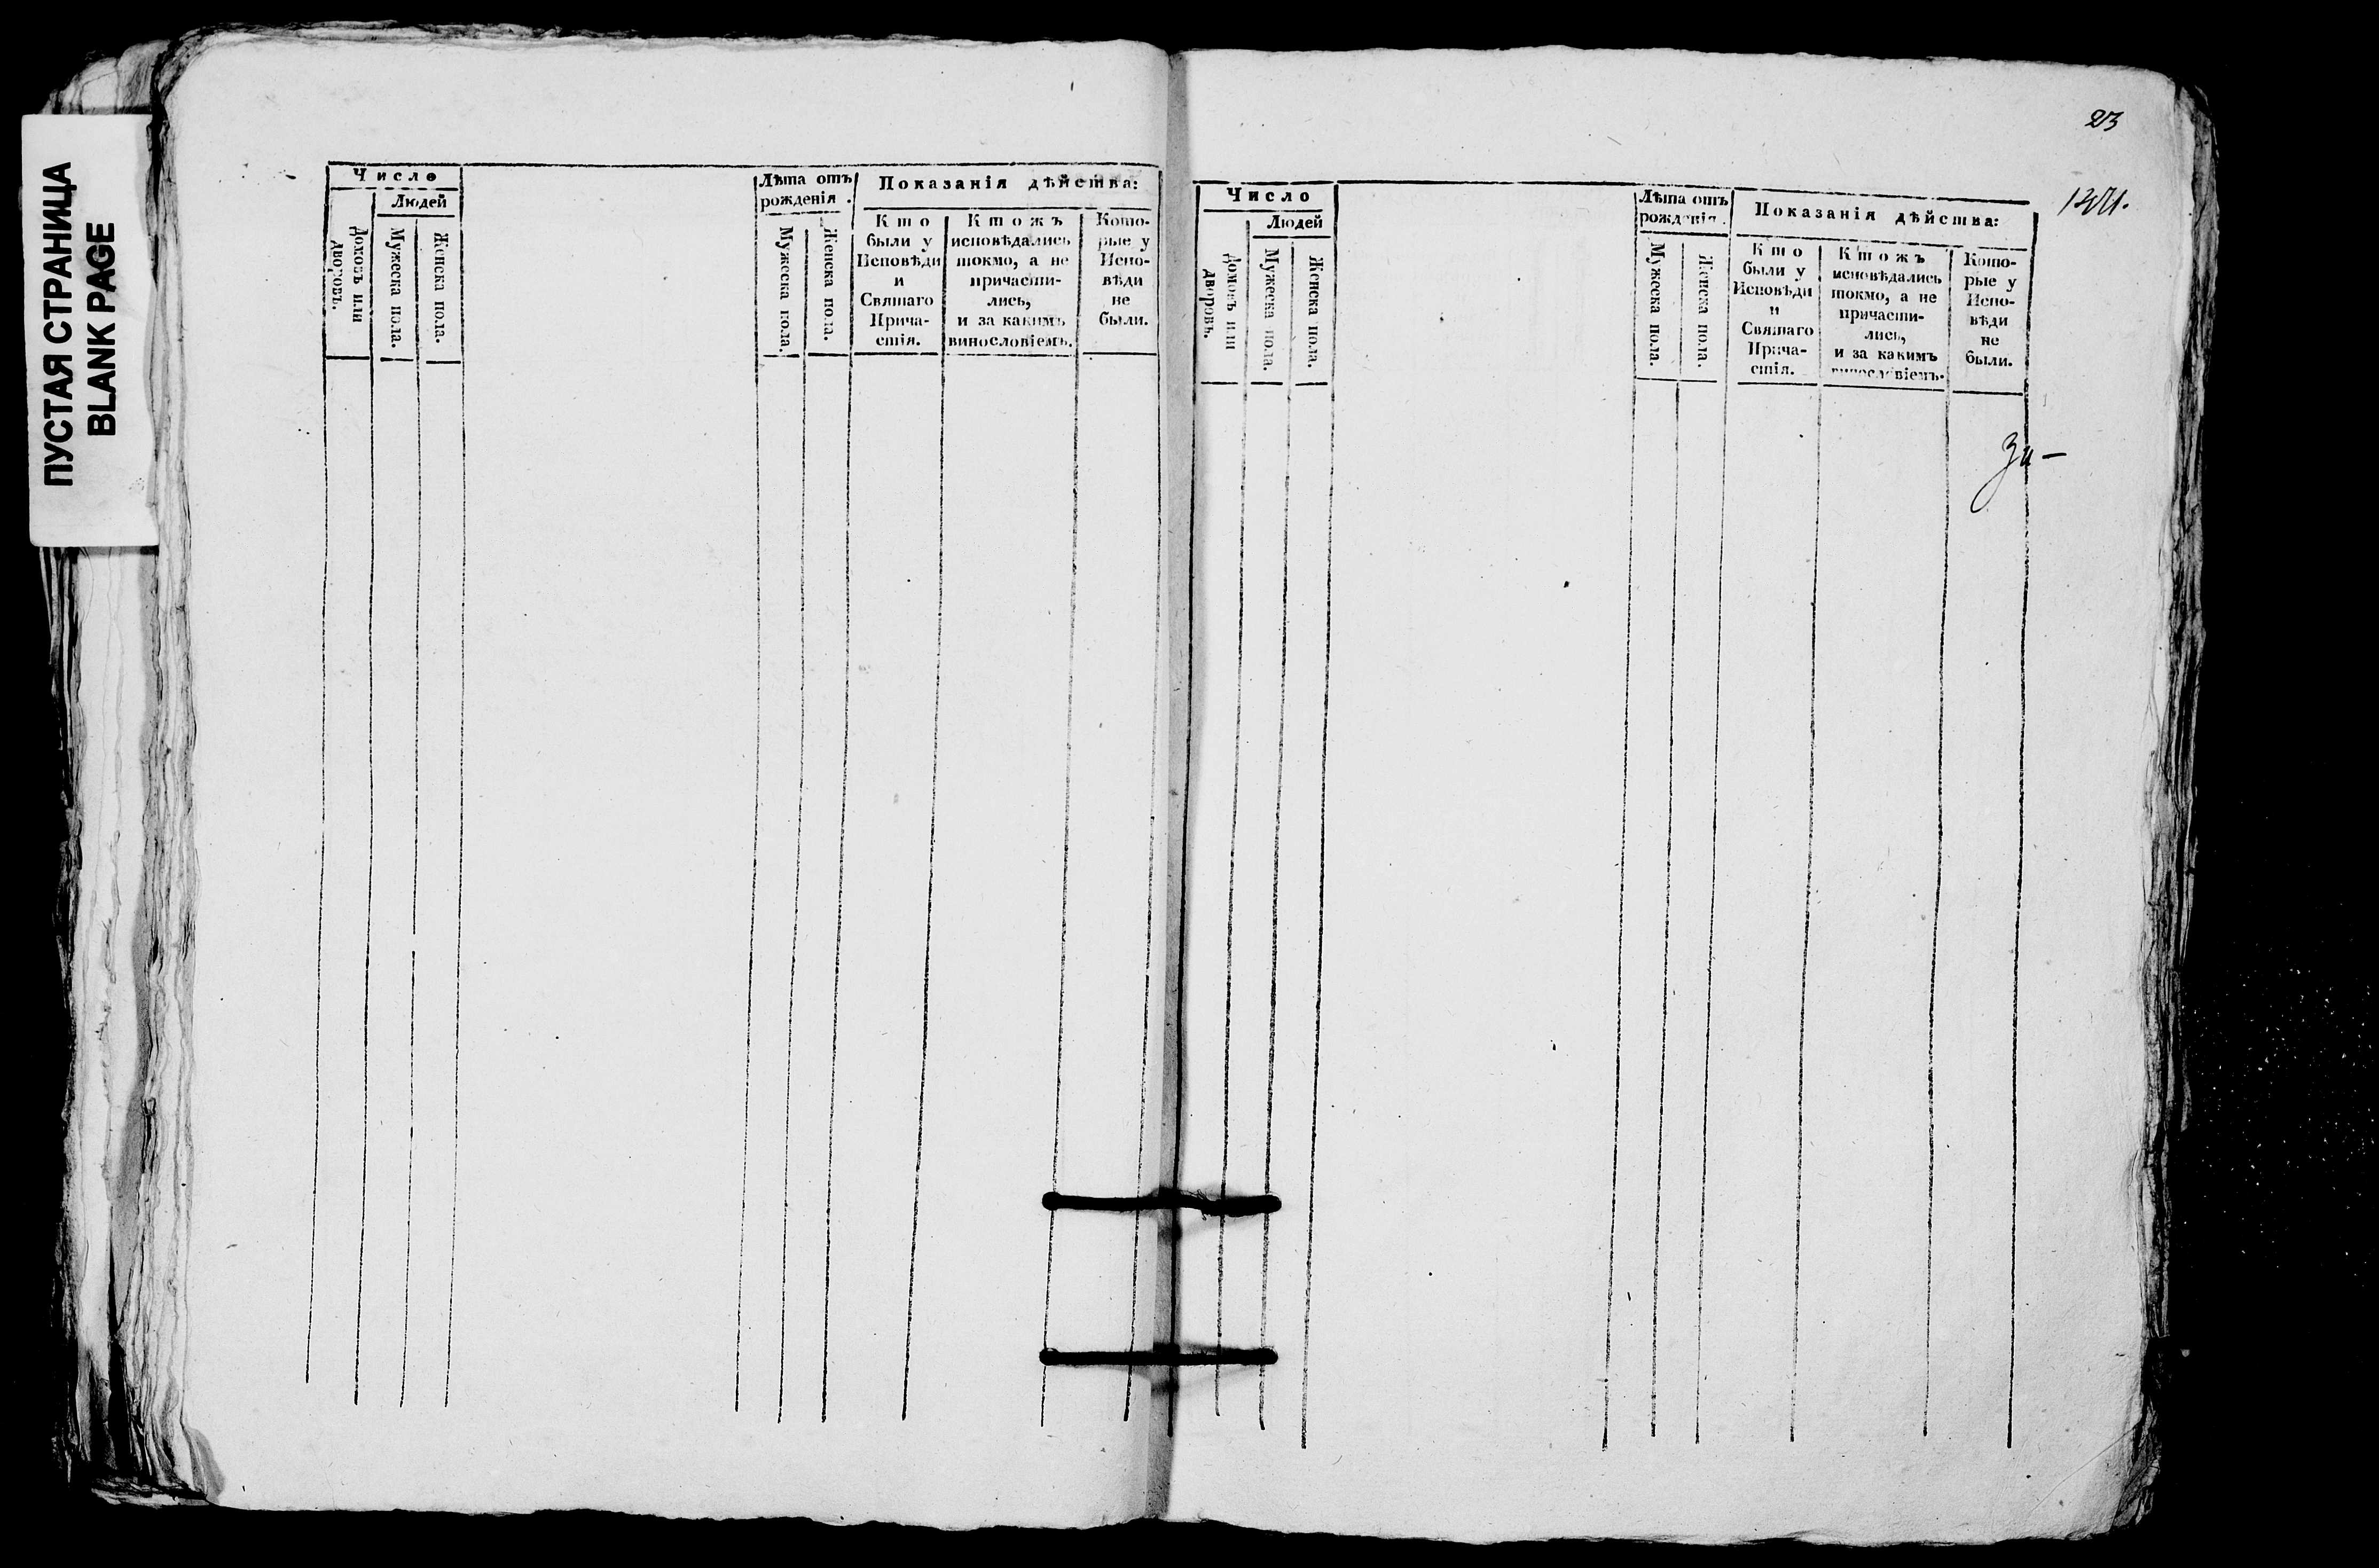 ПУСТАЯ СТРАНИЦА
BLANK PAGE
Число
Людей
Домовъ или
дворовъ.
Мужеска пола.
Женска пола.
Лѣта отъ
рожденія.
Мужеска пола.
Женска пола.
Показанія дѣйства:
Кто
были у
Исповѣди
и
Святаго
Прича-
стія.
Ктожъ
исповѣдались
токмо, а не
причасти-
лись,
и за какимъ
винословіемъ.
Кото-
рые у
Испо-
вѣди
не
были.
23
Число
Людей
Домовъ или
дворовъ.
Мужеска пола.
Женска пола.
Лѣта отъ
рожденія.
Мужеска пола.
Женска пола.
Показанія дѣйства:
Кто
были у
Исповѣди
и
Святаго
Прича-
стія.
Ктожъ
исповѣдались
токмо, а не
причасти-
лись,
и за какимъ
винословіемъ.
Кото-
рые у
Испо-
вѣди
не
были.